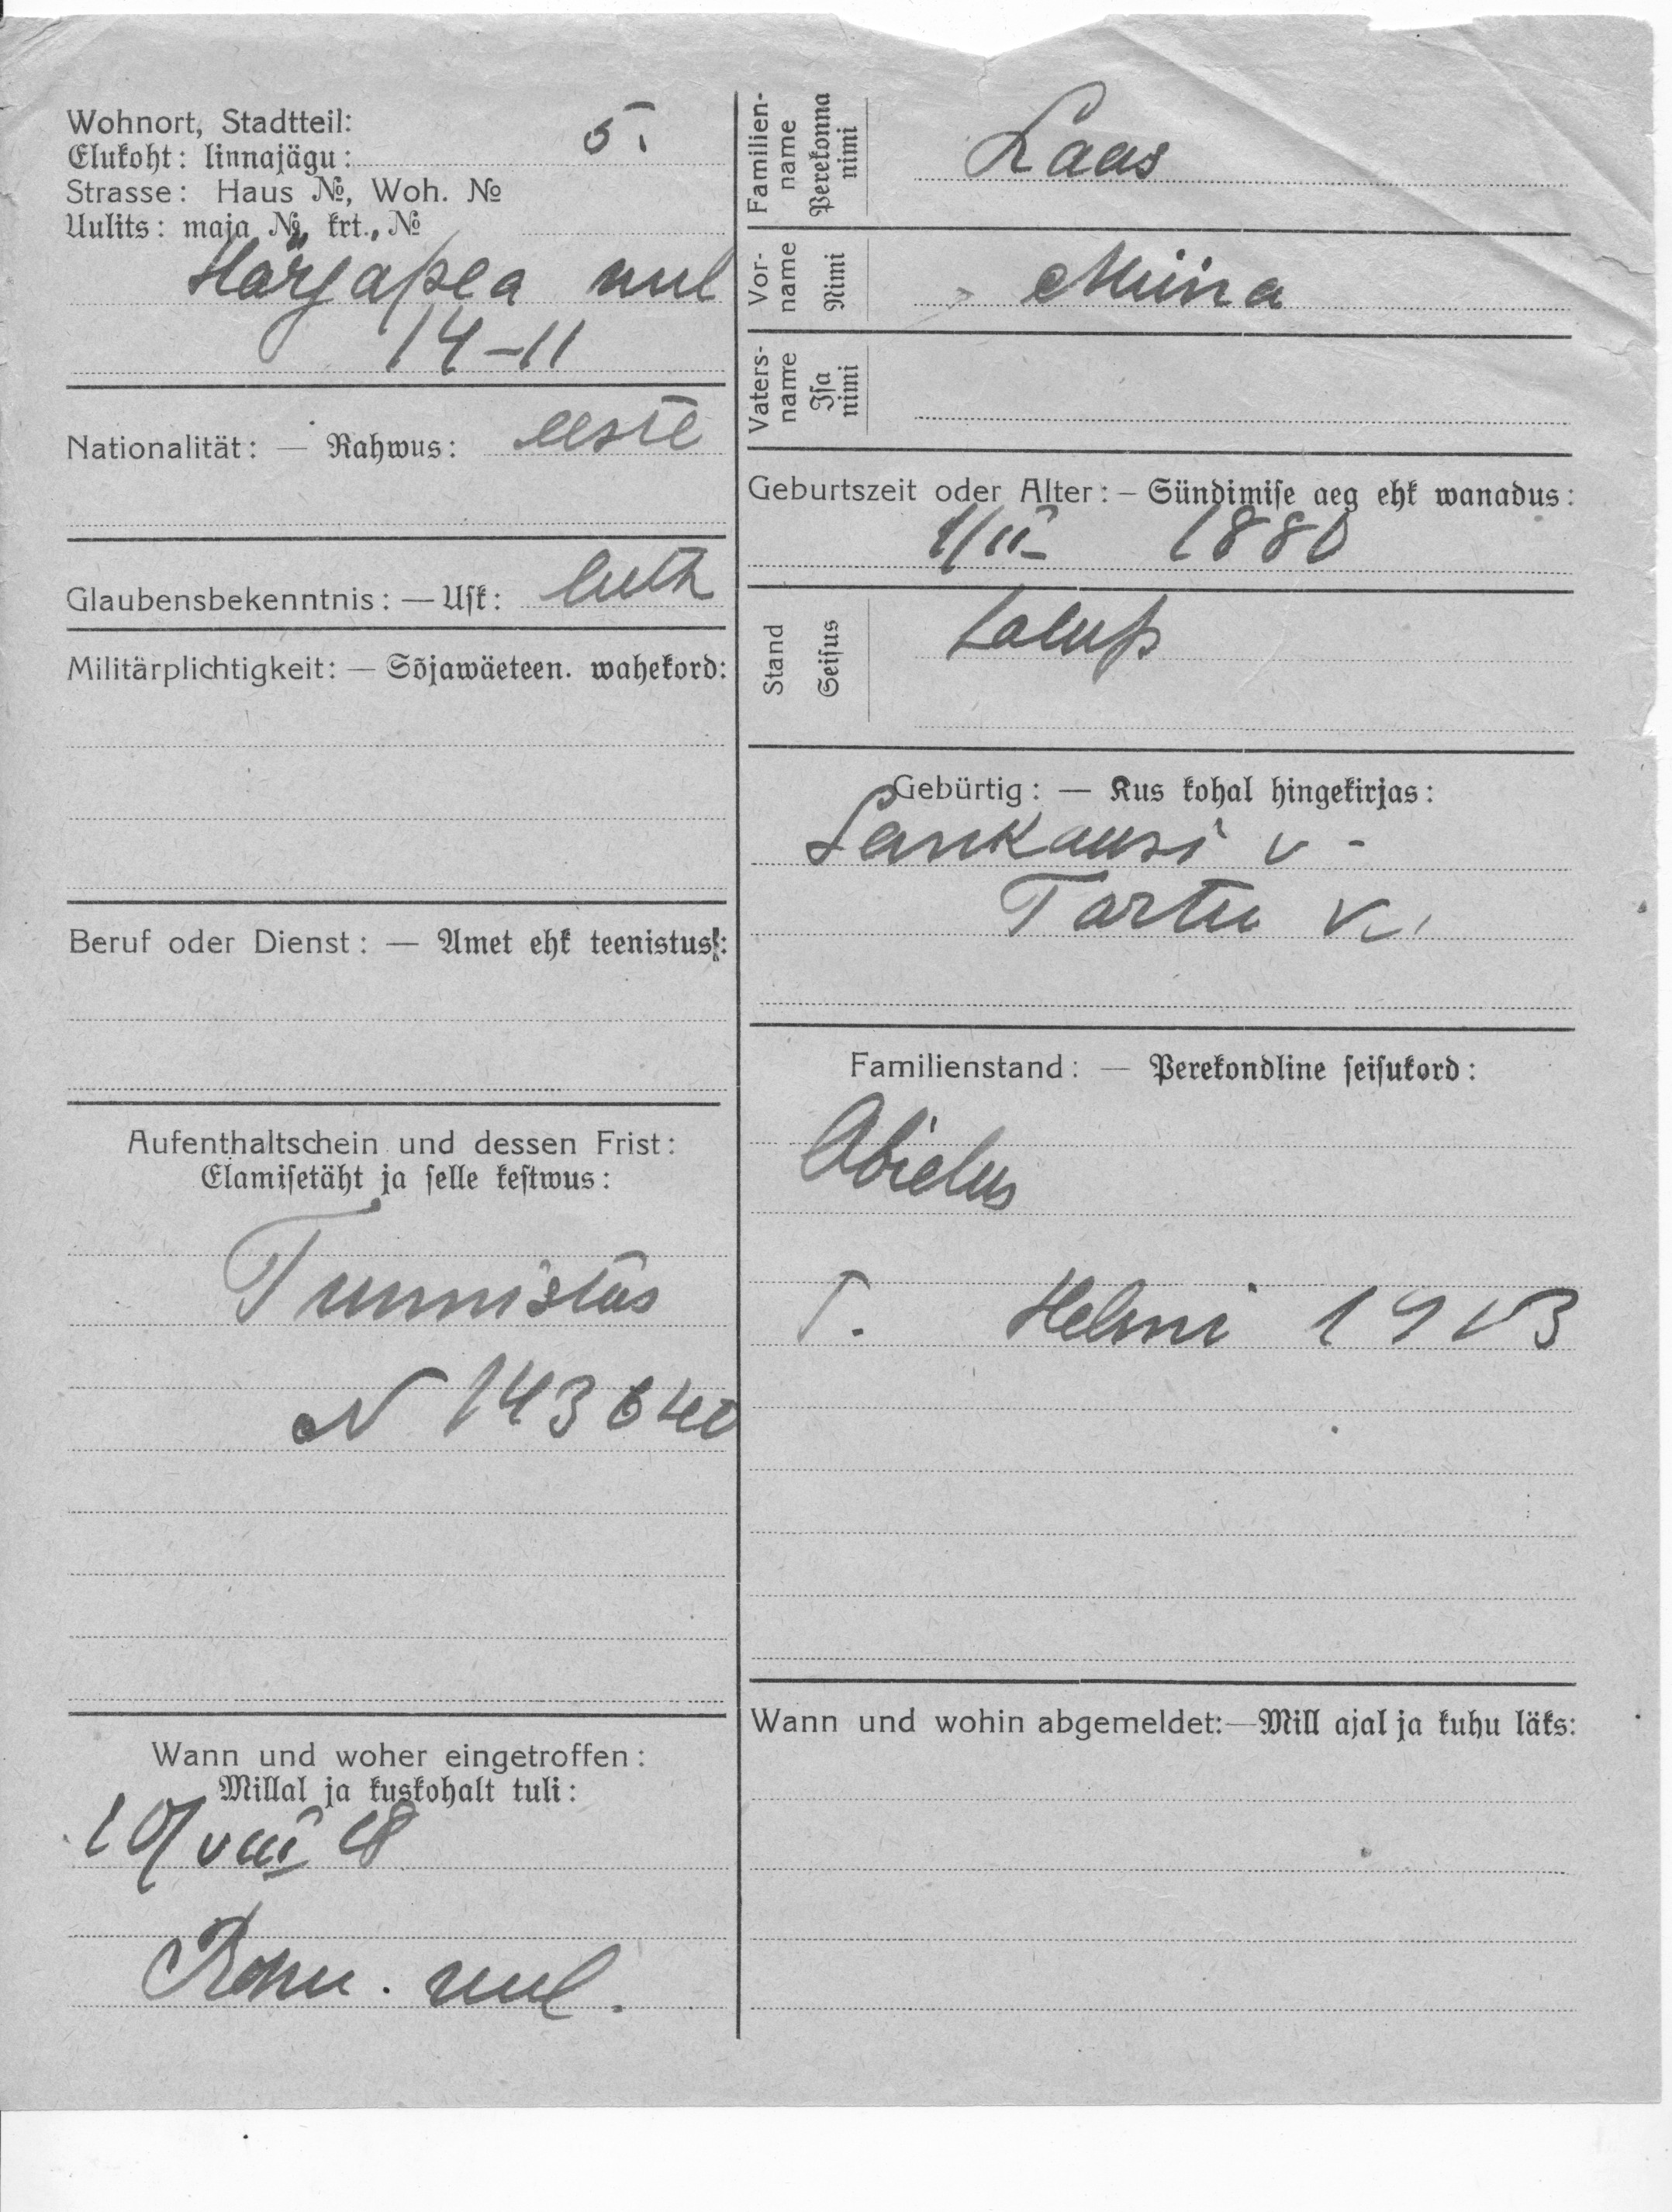 Wohnort, Stadtteil:
Elukoht: linnajägu: 5.
Strasse: Haus №, Woh. №
Uulits: maja №, krt., №
Härjapea uul
14-11
Nationalität: — Rahwus: eeste
Glaubensbekenntnis: — Usk: luth
Militärplichtigkeit: — Sõjawäeteen. wahekord:
Beruf oder Dienst: — Amet ehk teenistus:
Aufenthaltschein und dessen Frist:
Elamisetäht ja selle kestwus:
Tunnistus
N 143640
Wann und woher eingetroffen:
Millal ja kuskohalt tuli:
10/VIII 18
Rohu. uul.
Familien-
name
Perekonna
nimi
Laas
Vor-
name
Nimi
Miina
Vaters-
name
Isa
nimi
Geburtszeit oder Alter: — Sündimise aeg ehk wanadus:
1/II 1880
Stand
Seisus
Talup
Gebürtig: — Kus kohal hingekirjas:
v.
Tartu K.
Familienstand: — Perekondline seisukord:
Abielus
T. Helmi 1913
Wann und wohin abgemeldet: — Mill ajal ja kuhu läks: